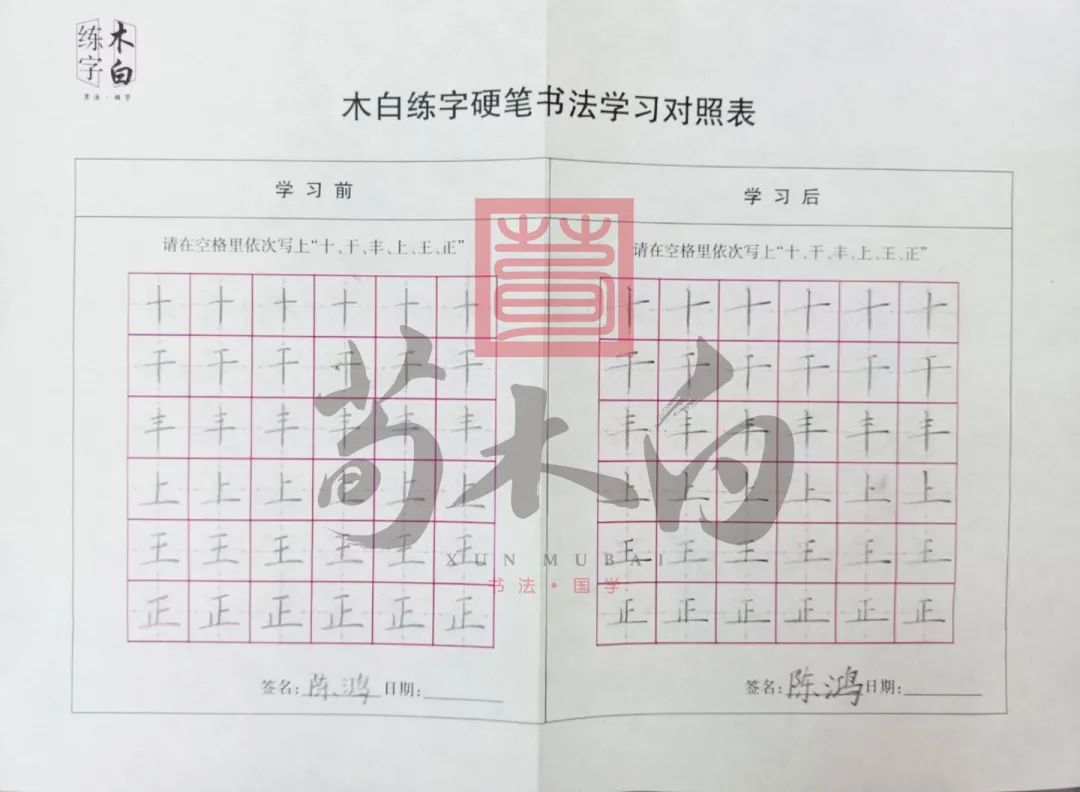 木白
练字
书法·国学
木白练字硬笔书法学习对照表
学习前
请在空格里依次写上“十、干、丰、上、王、正”
十 十 十 十 十 十
干 干 干 干 干 干
丰 丰 丰 丰 丰 丰
上 上 上 上 上 上
王 王 王 王 王 王
正 正 正 正 正 正
签名:陈鸿 日期:
学习后
请在空格里依次写上“十、干、丰、上、王、正”
十 十 十 十 十 十
干 干 干 干 干 干
丰 丰 丰 丰 丰 丰
上 上 上 上 上 上
王 王 王 王 王 王
正 正 正 正 正 正
签名:陈鸿 日期:
荀木白
XUN MUBAI
书法·国学